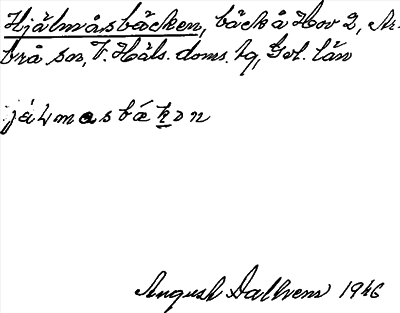 Hjälmåsbäcken, bäck å Hov 2, Ar-
brå sn, V. Häls. doms. tg, Gvl. län
jälmasbäkən
August Dallrens 1946